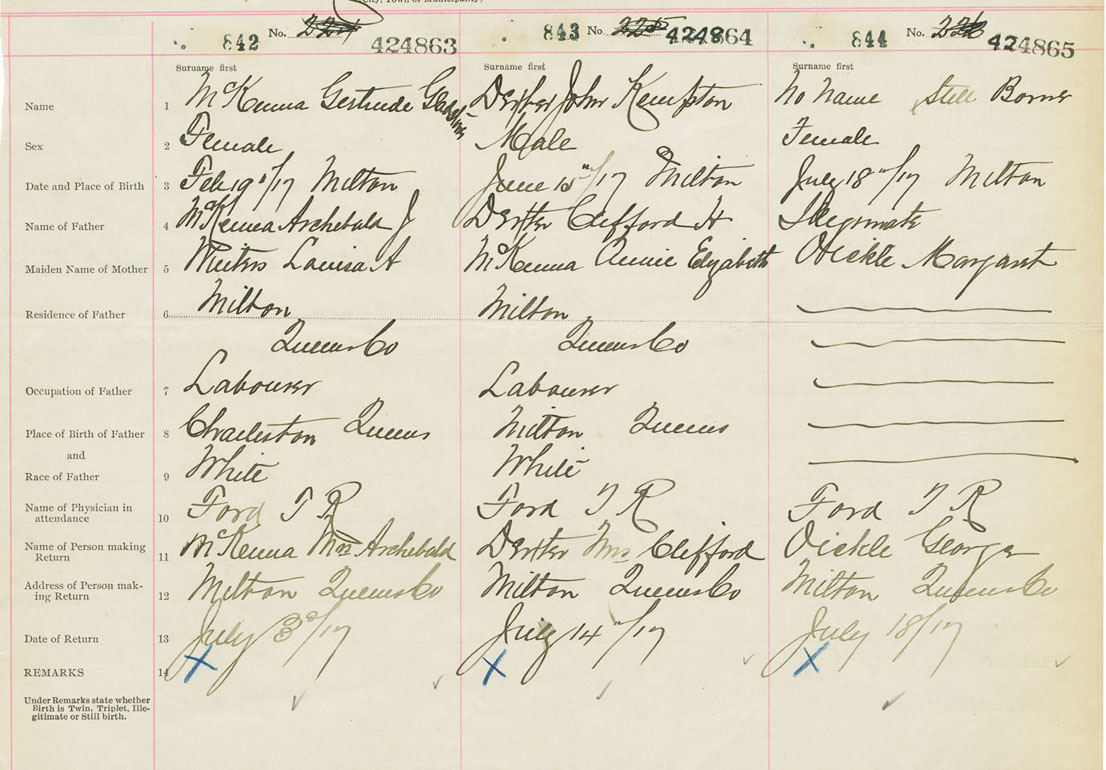 (City, Town or Municipality)
842 No. 224 424863 843 No. 225 424864 844 No. 226 424865
Surname first Surname first Surname first
Name 1 McKenna Gertrude Dexter John Kempton No Name Still Borne
Sex 2 Female Male Female
Date and Place of Birth 3 Feb 19th/17 Milton June 15th/17 Milton July 18th/17 Milton
Name of Father 4 McKenna Archebald J Dexter Clifford H Illegimate
Maiden Name of Mother 5 Winters Louisa A McKenna Annie Elizabeth Oickle Margaret
Residence of Father 6 Milton Milton
Queens Co Queens Co
Occupation of Father 7 Labourer Labourer
Place of Birth of Father 8 Charleston Queens Milton Queens
and
Race of Father 9 White White
Name of Physician in
attendance 10 Ford T R Ford T R Ford T R
Name of Person making
Return 11 McKenna Mrs Archebald Dexter Mrs Clifford Oickle George
Address of Person mak-
ing Return 12 Milton Queens Co Milton Queens Co Milton Queens Co
Date of Return 13 July /17 July 14th/17 July 18/17
REMARKS 14 X X X
Under Remarks state whether
Birth is Twin, Triplet, Ille-
gitimate or Still birth.